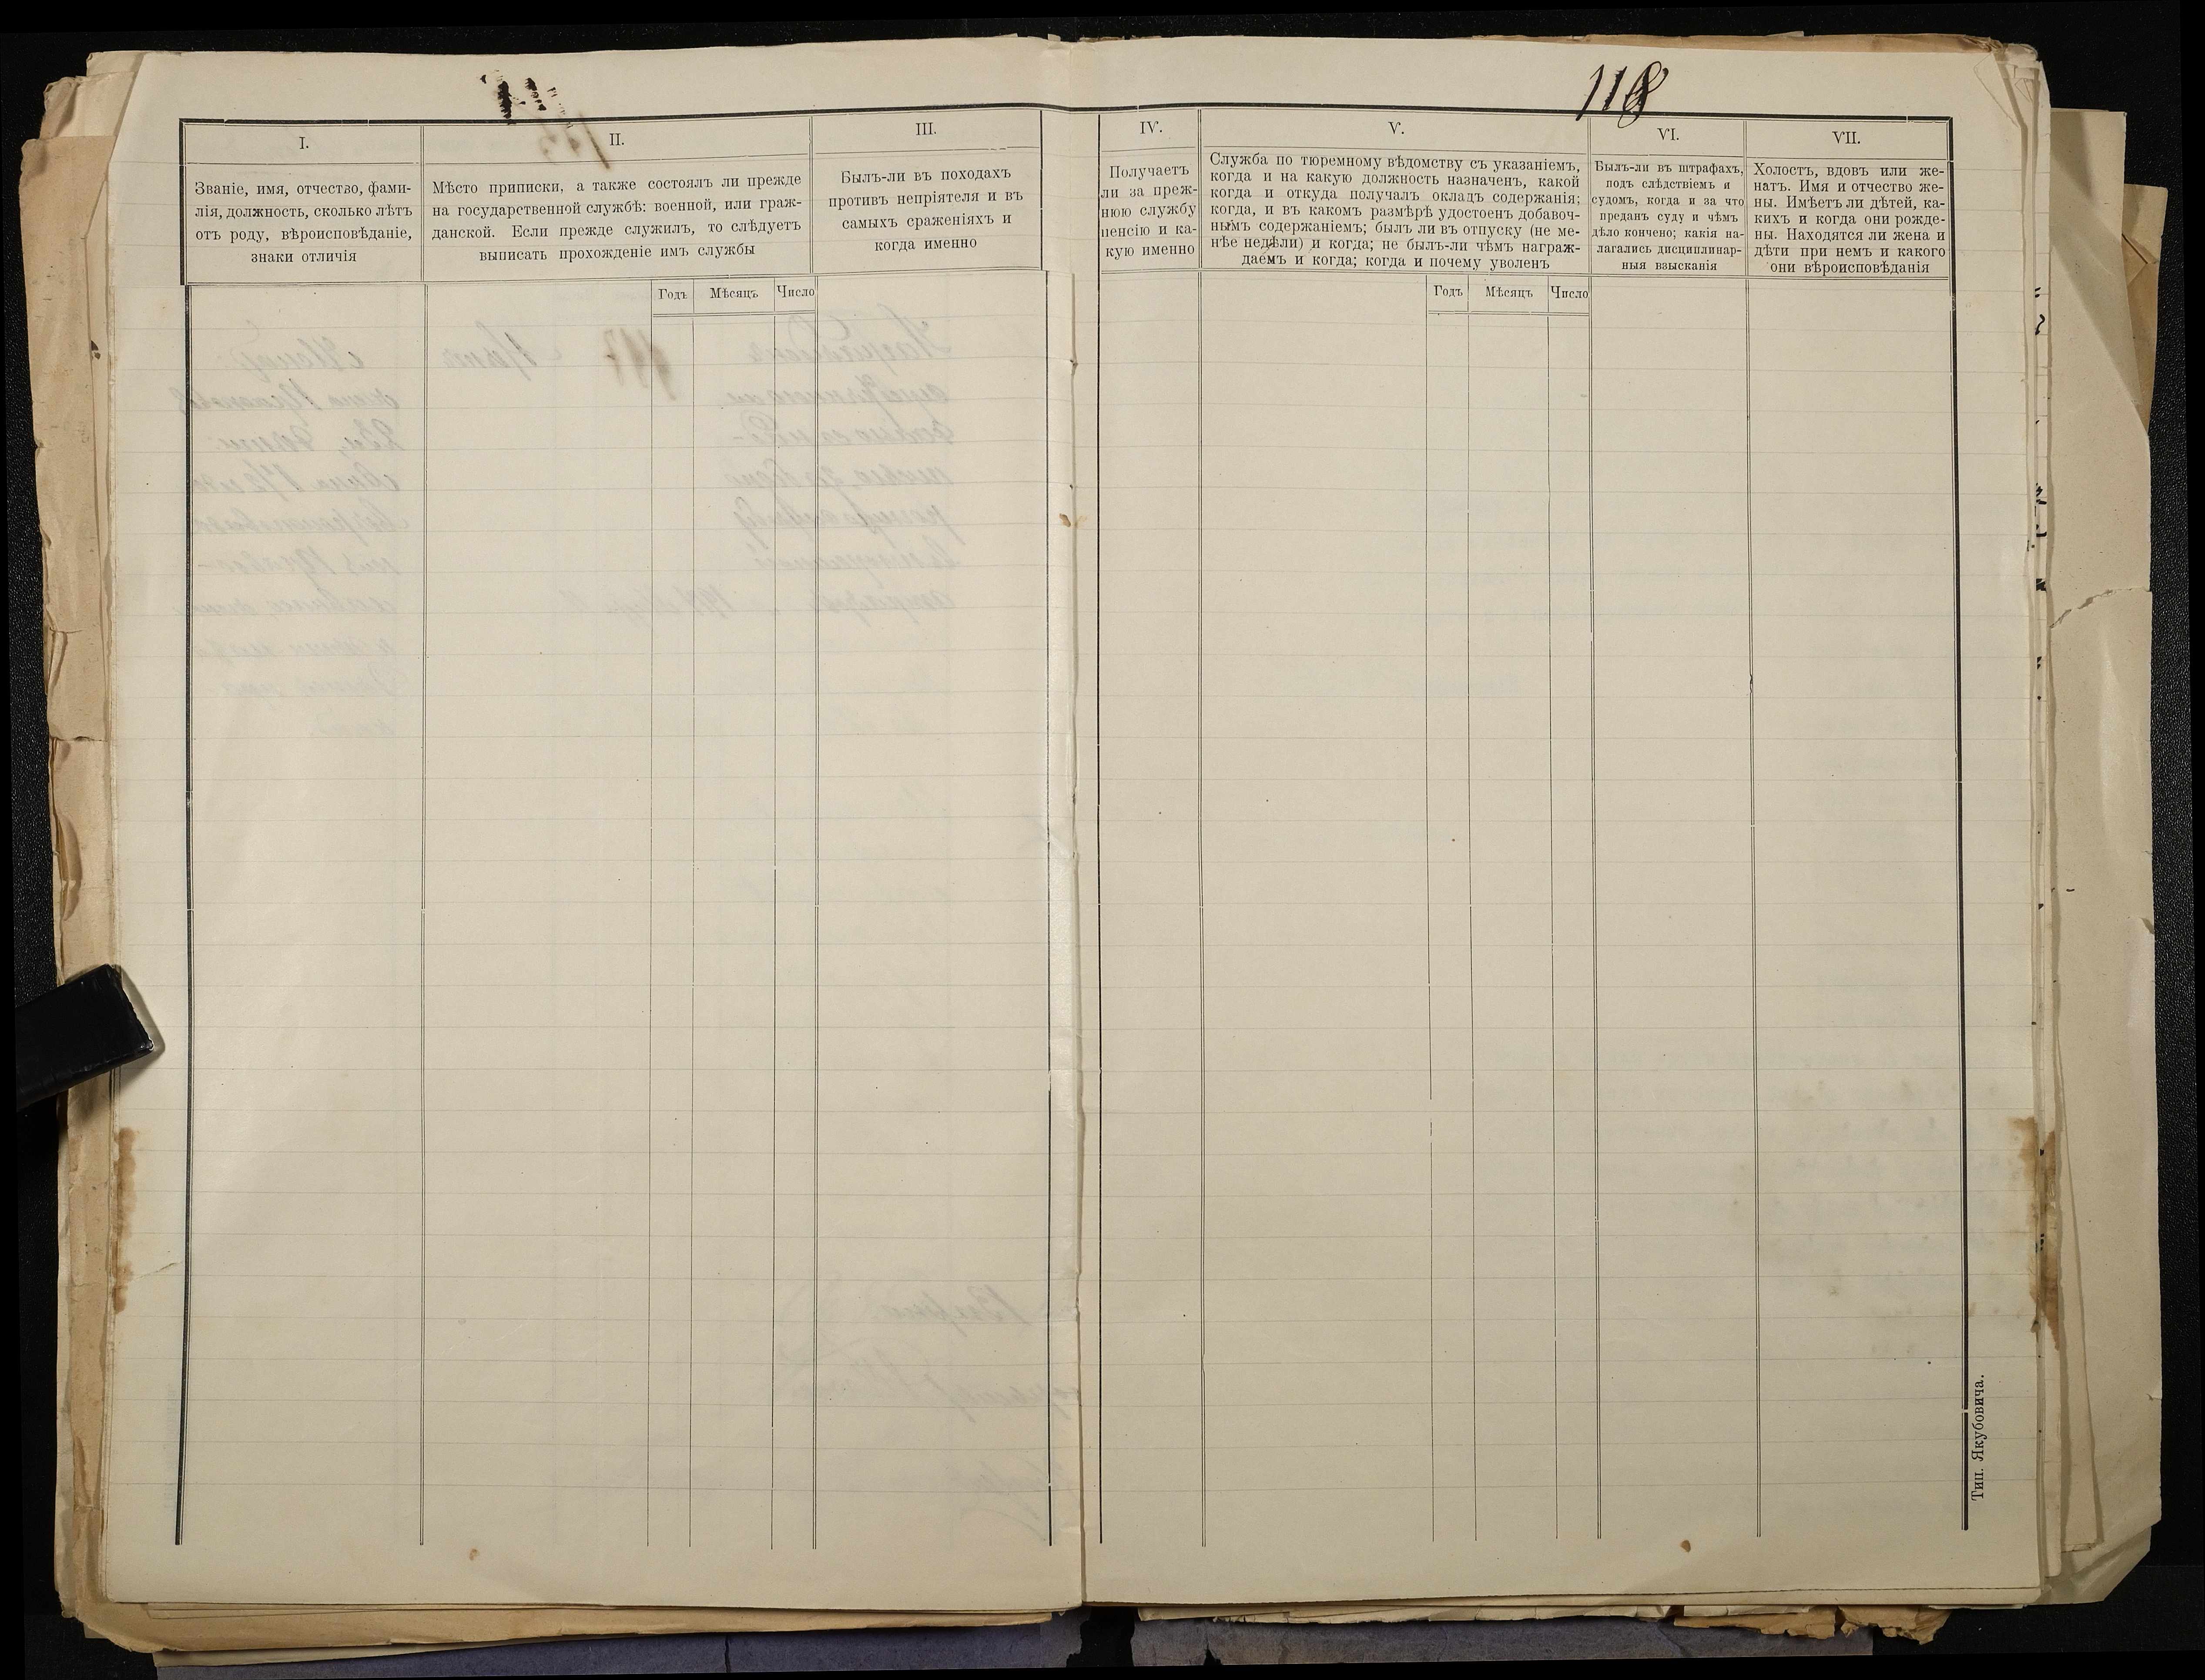 118
I.
Званіе, имя, отчество, фами-
лія, должность, сколько лѣтъ
отъ роду, вѣроисповѣданіе,
знаки отличія
II.
Мѣсто приписки, а также состоялъ ли прежде
на государственной службѣ: военной, или граж-
данской. Если прежде служилъ, то слѣдуетъ
выписать прохожденіе имъ службы
Годъ Мѣсяцъ Число
III.
Былъ-ли въ походахъ
противъ непріятеля и въ
самыхъ сраженіяхъ и
когда именно
IV.
Получаетъ
ли за преж-
нюю службу
пенсію и ка-
кую именно
V.
Служба по тюремному вѣдомству съ указаніемъ,
когда и на какую должность назначенъ, какой
когда и откуда получалъ окладъ содержанія;
когда, и въ какомъ размѣрѣ удостоенъ добавоч-
нымъ содержаніемъ; былъ ли въ отпуску (не ме-
нѣе недѣли) и когда; не былъ-ли чѣмъ награж-
даемъ и когда; когда и почему уволенъ
Годъ Мѣсяцъ Число
VI.
Былъ-ли въ штрафахъ,
подъ слѣдствіемъ и
судомъ, когда и за что
преданъ суду и чѣмъ
дѣло кончено; какія на-
лагались дисциплинар-
ныя взысканія
VII.
Холостъ, вдовъ или же-
натъ. Имя и отчество же-
ны. Имѣетъ ли дѣтей, ка-
кихъ и когда они рожде-
ны. Находятся ли жена и
дѣти при немъ и какого
они вѣроисповѣданія
Тип. Якубовича.